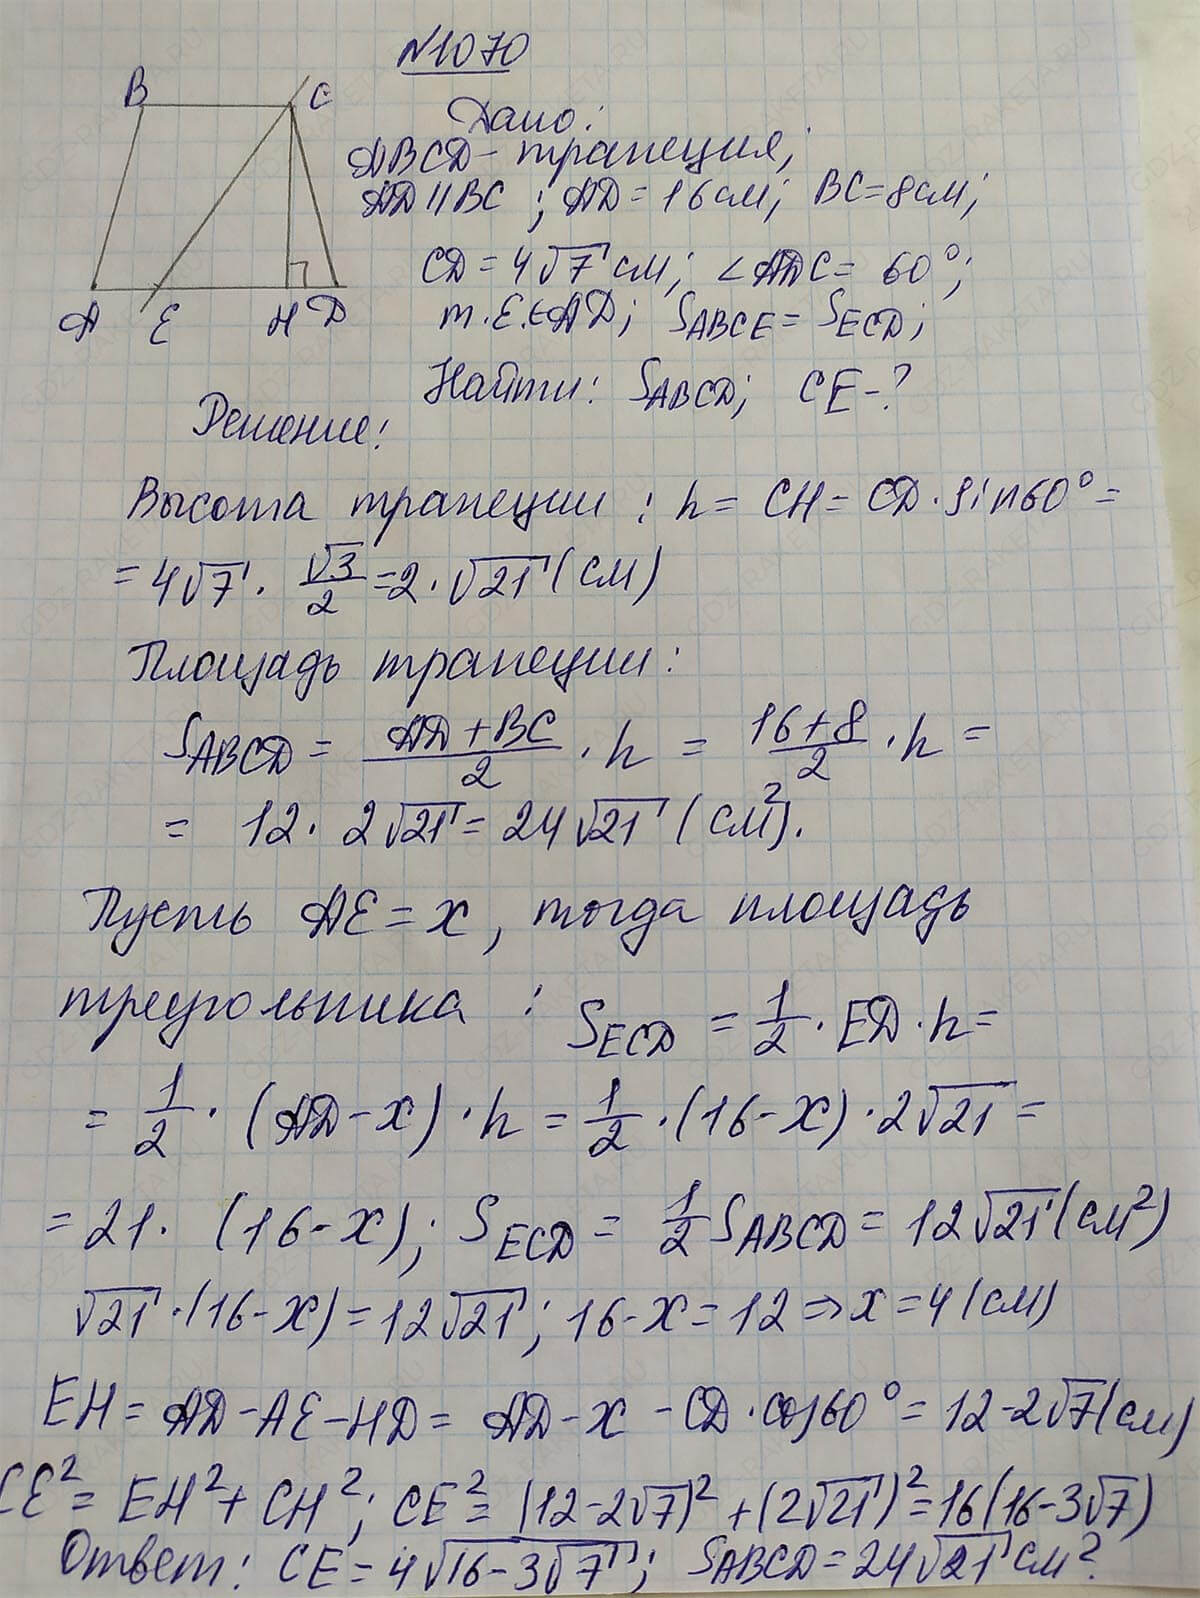 №1070
B C
Дано:
ABCD - трапеция;
AD || BC ; AD = 16 см; BC = 8 см;
CD = 4√7 см; ∠ADC = 60°;
т. E ∈ AD; S_ABCE = S_ECD;
A E H D
Найти: S_ABCD; CE - ?
Решение:
Высота трапеции: h = CH = CD · sin 60° =
= 4√7 · √3/2 = 2 · √21 (см)
Площадь трапеции:
S_ABCD = (AD + BC)/2 · h = (16 + 8)/2 · h =
= 12 · 2√21 = 24√21 (см²).
Пусть AE = x, тогда площадь
треугольника : S_ECD = 1/2 · ED · h =
= 1/2 · (AD - x) · h = 1/2 · (16 - x) · 2√21 =
= 21 · (16 - x); S_ECD = 1/2 S_ABCD = 12√21 (см²)
√21 · (16 - x) = 12√21; 16 - x = 12 => x = 4 (см)
EH = AD - AE - HD = AD - x - CD · cos 60° = 12 - 2√7 (см)
CE² = EH² + CH²; CE² = (12 - 2√7)² + (2√21)² = 16(16 - 3√7)
Ответ: CE = 4√(16 - 3√7); S_ABCD = 24√21 см²